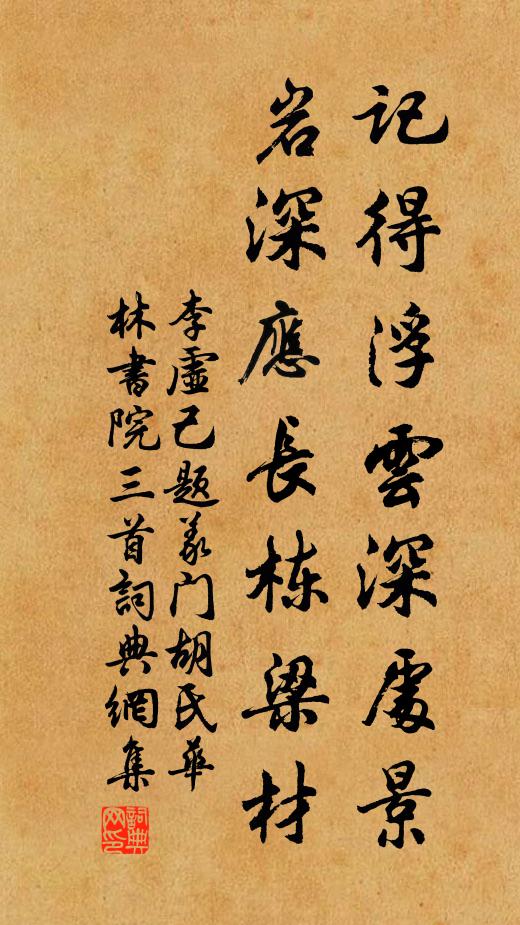 記得浮雲深處景
岩深應長栋梁材
李虛己題義门胡氏華
林書院三首詞典網集
詞典网印